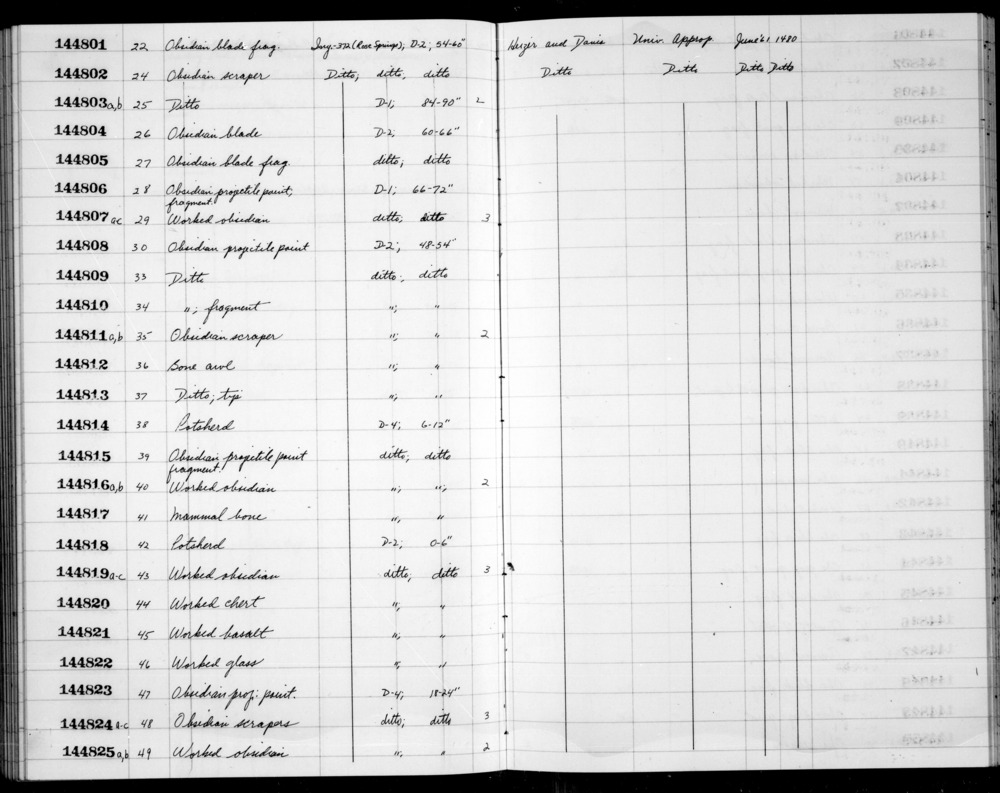 144801 22 Obsidian blade frag. Iny-372 (Rose Springs); D-2; 54-60" Heizer and Davis Univ. Approp June '61 1480
144802 24 Obsidian scraper Ditto; ditto, ditto Ditto Ditto Ditto Ditto
144803 a,b 25 Ditto D-1; 84-90" 2
144804 26 Obsidian blade D-2; 60-66"
144805 27 Obsidian blade frag. ditto; ditto
144806 28 Obsidian projectile point; D-1; 66-72"
fragment.
144807 a-c 29 Worked obsidian ditto; ditto 3
144808 30 Obsidian projectile point D-2; 48-54"
144809 33 Ditto ditto; ditto
144810 34 "; fragment "; "
144811 a,b 35 Obsidian scraper "; " 2
144812 36 Bone awl "; "
144813 37 Ditto; tip "; "
144814 38 Potsherd D-4; 6-12"
144815 39 Obsidian projectile point ditto; ditto
fragment.
144816 a,b 40 Worked obsidian "; "; 2
144817 41 Mammal bone "; "
144818 42 Potsherd D-2; 0-6"
144819 a-c 43 Worked obsidian ditto; ditto 3
144820 44 Worked chert "; "
144821 45 Worked basalt "; "
144822 46 Worked glass "; "
144823 47 Obsidian proj. point. D-4; 18-24"
144824 a-c 48 Obsidian scrapers ditto; ditto 3
144825 a,b 49 Worked obsidian "; " 2